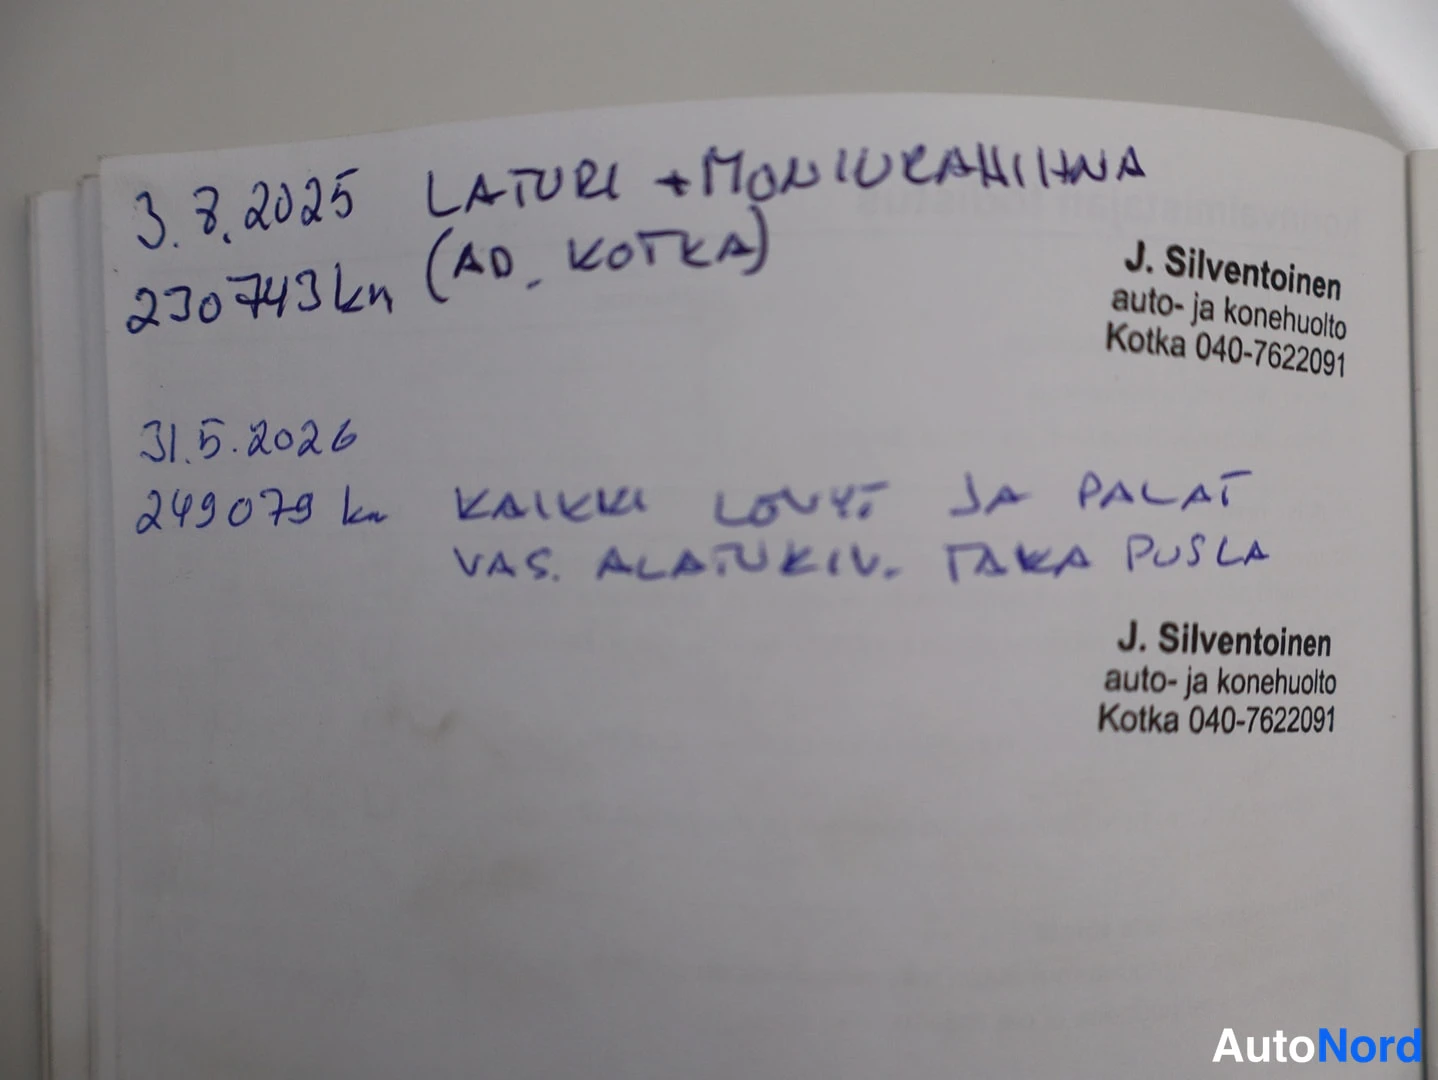 3.8.2025 LATURI + MONIURAHIHNA
230743 km (AD. KOTKA)
J. Silventoinen
auto- ja konehuolto
Kotka 040-7622091
31.5.2026
249079 km KAIKKI LEVYT JA PALAT
VAS. ALATUKIV. TAKA PUSLA
J. Silventoinen
auto- ja konehuolto
Kotka 040-7622091
AutoNord